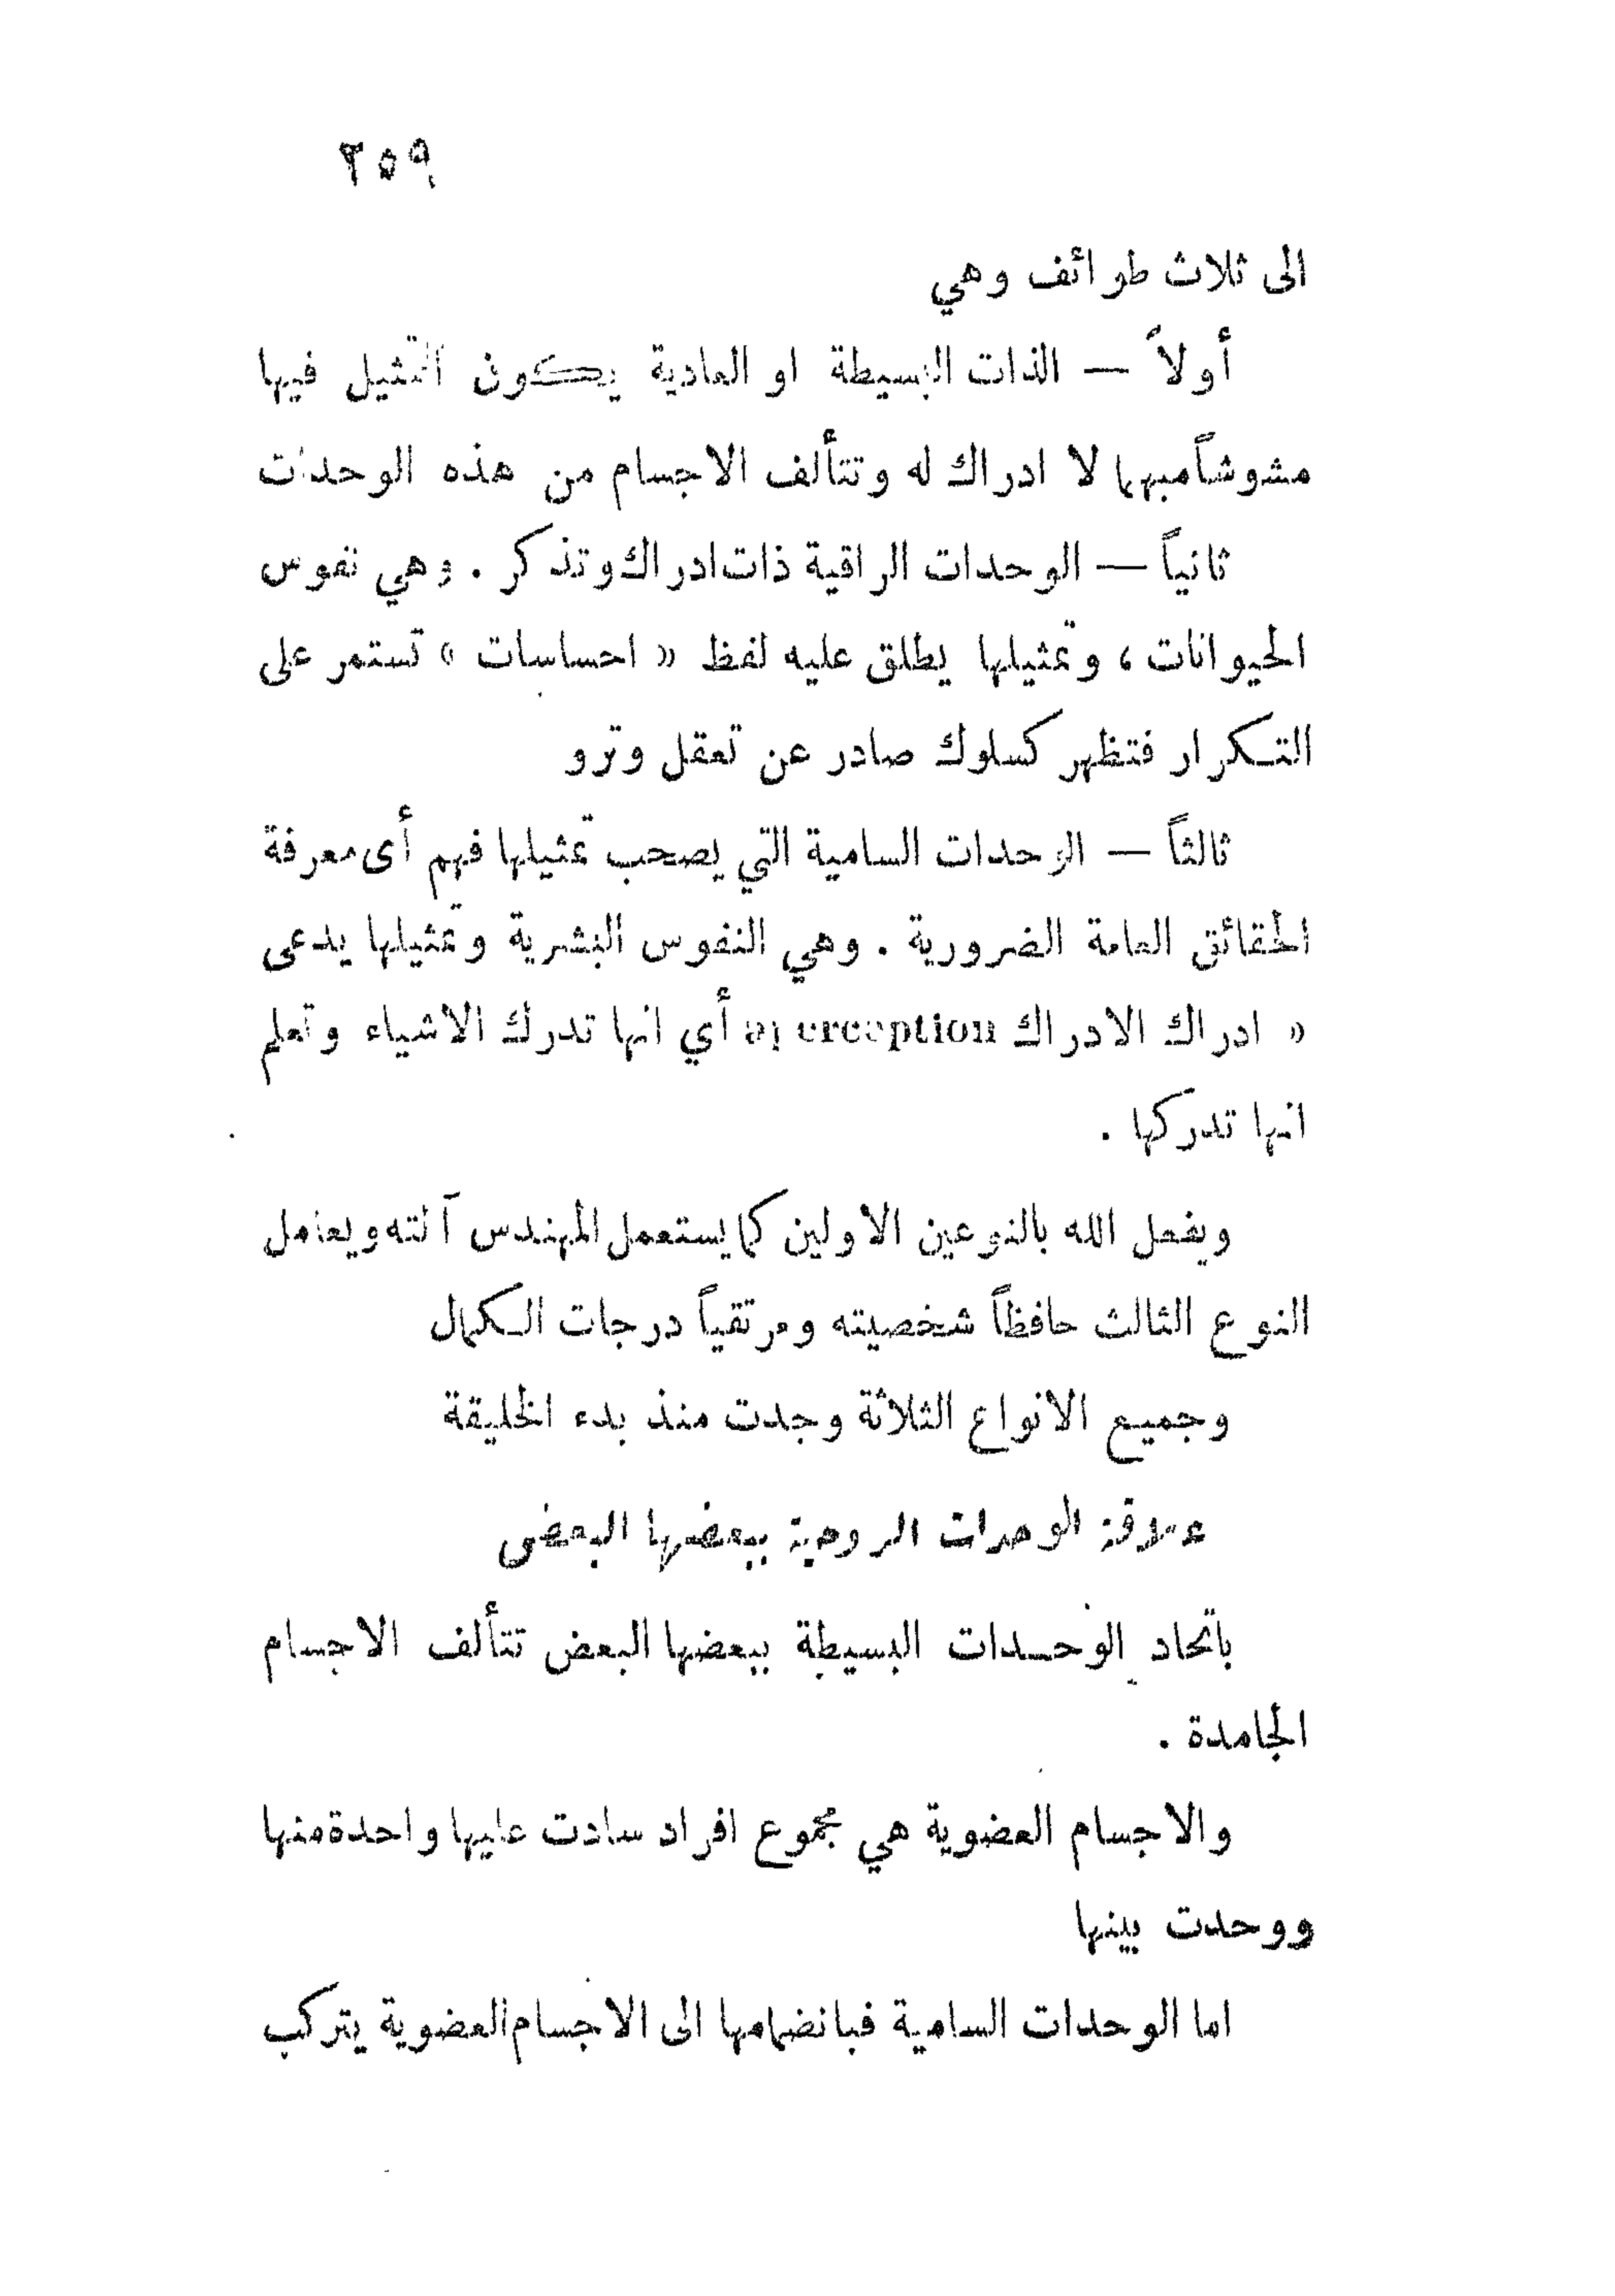 ٢٥٩
الى ثلاث طوائف وهي
أولاً — الذات البسيطة او العادية يكون التمثيل فيها
مشوشاً مبهما لا ادراك له وتتألف الاجسام من هذه الوحدات
ثانياً — الوحدات الراقية ذات ادراك وتذكر . وهي نفوس
الحيوانات ، وتمثيلها يطلق عليه لفظ « احساسات » تستمر على
التكرار فتظهر كسلوك صادر عن تعقل وترو
ثالثاً — الوحدات السامية التي يصحب تمثيلها فهم أى معرفة
الحقائق العامة الضرورية . وهي النفوس البشرية وتمثيلها يدعى
« ادراك الادراك apperception أي انها تدرك الاشياء وتعلم
انها تدركها .
ويفعل الله بالنوعين الاولين كما يستعمل المهندس آلته ويعامل
النوع الثالث حافظاً شخصيته ومرتقياً درجات الكمال
وجميع الانواع الثلاثة وجدت منذ بدء الخليقة
علاقة الوحدات الروحية ببعضها البعض
باتحاد الوحدات البسيطة ببعضها البعض تتألف الاجسام
الجامدة .
والاجسام العضوية هي مجموع افراد سادت عليها واحدة منها
ووحدت بينها
اما الوحدات السامية فبانضمامها الى الاجسام العضوية يتركب